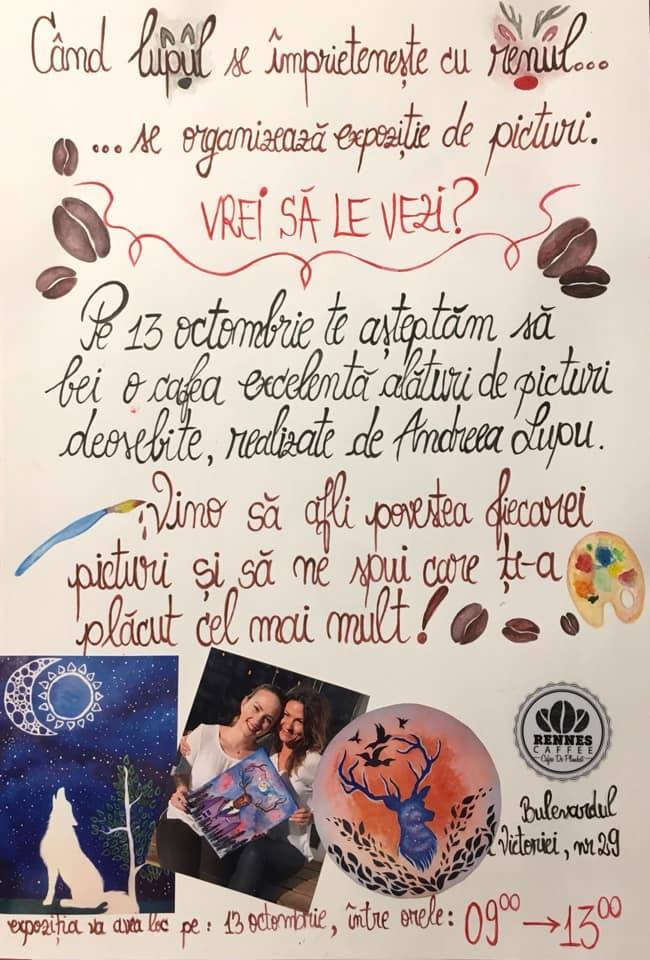 Când lupul se împrietenește cu renul...
... se organizează expoziție de picturi.
VREI SĂ LE VEZI?
Pe 13 octombrie te așteptăm să
bei o cafea excelentă alături de picturi
deosebite, realizate de Andreea Lupu.
Vino să afli povestea fiecarei
picturi și să ne spui care ți-a
plăcut cel mai mult!
RENNES
CAFFEE
Cafea De Planket
Bulevardul
Victoriei, nr 29
expoziția va avea loc pe: 13 octombrie, între orele: 09⁰⁰ → 13⁰⁰